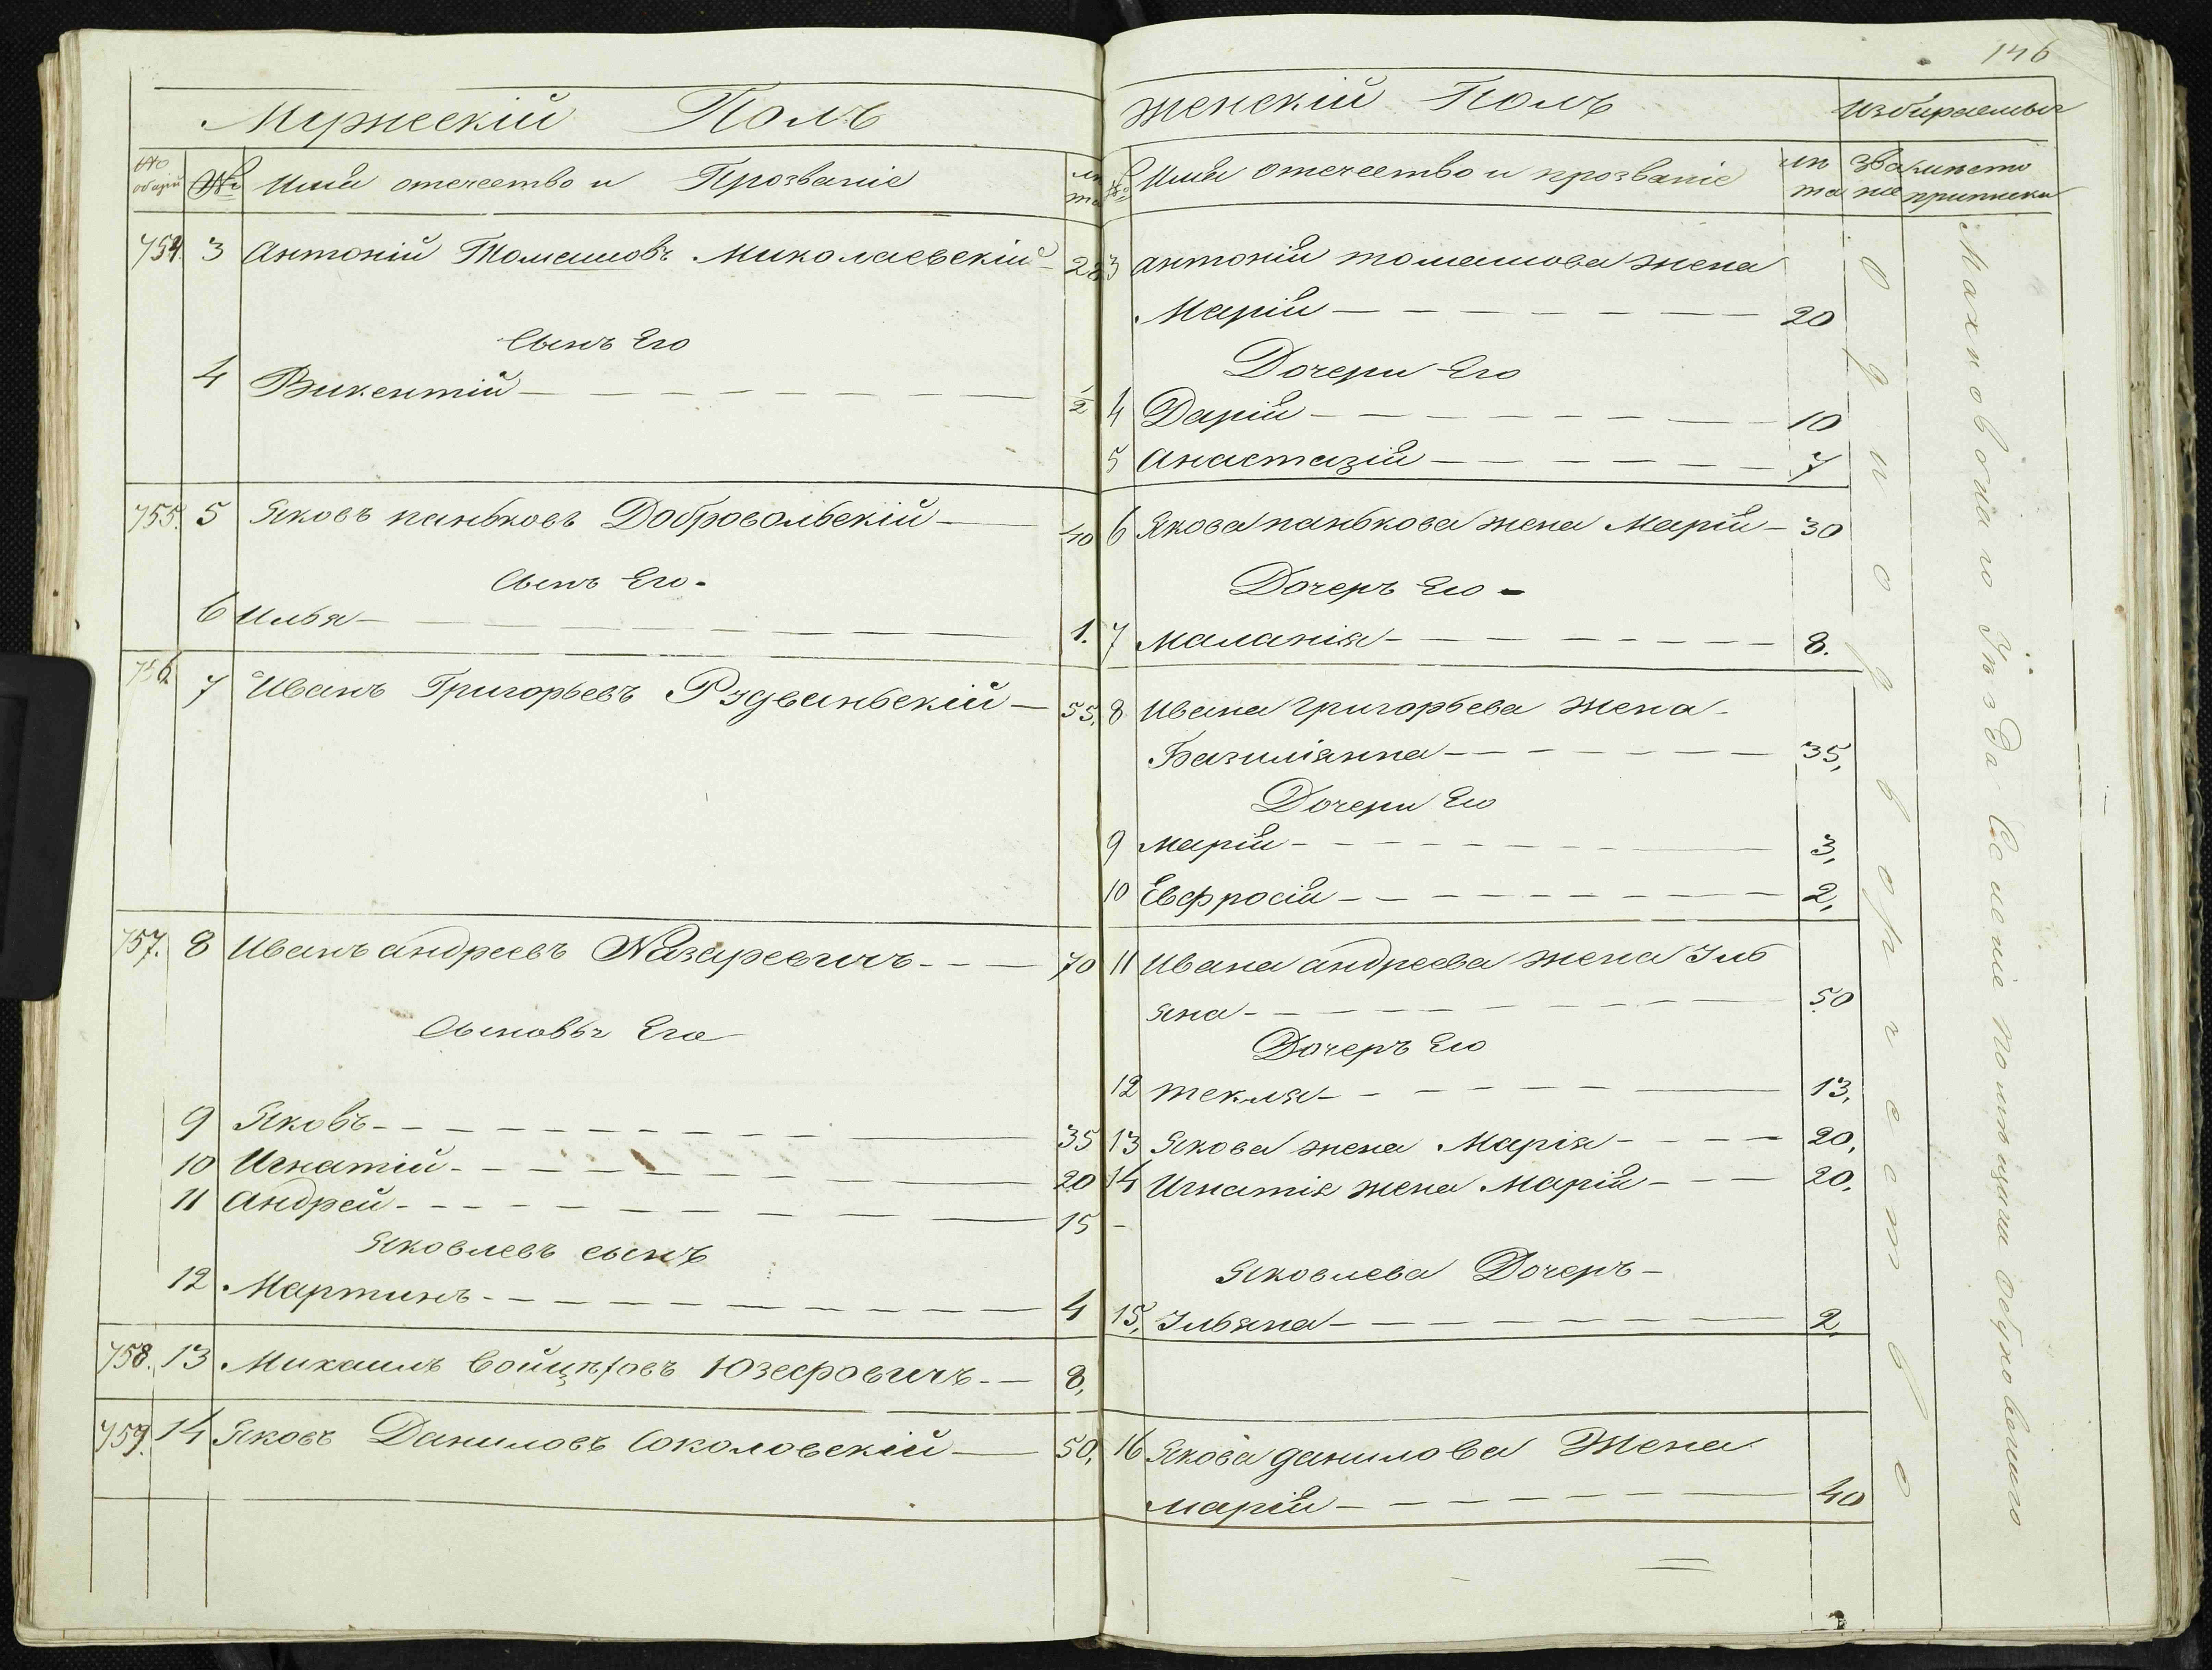 146
Мужескій Полъ
№ общій № Имя отечество и Прозваніе лѣта
754. 3 Антоній Томашовъ Миколаевскій 28
Сынъ Его
4 Викентій 1/2
755. 5 Яковъ паньковъ Добровольскій 40
Сынъ Его
6 Илья 1.
756. 7 Иванъ Григорьевъ Рздваньскій 55,
757. 8 Иванъ андреевъ Назаревичъ 70
Сыновья Его
9 Яковъ 35
10 Игнатій 20
11 Андрей 15
Яковлевъ сынъ
12 Мартинъ 4
758. 13 Михаилъ Войцѣховъ Юзефовичъ 8,
759. 14 Яковъ Даниловъ Соколовскій 50,
Женскій Полъ
Избираемыя
№ Имя отечество и прозваніе лѣта званіе мѣсто приписки
3 антонія томашова жена
Марій 20
Дочери Его
4 Дарій 10
5 Анастазій 7
6 Якова панькова жена Марій 30
Дочеръ Его
7 Маланія 8.
8 Ивана григорьева жена
Базиліянна 35,
Дочери Его
9 Марій 3,
10 Евфросій 2,
11 Ивана андреева жена Уль
яна 50
Дочеръ Его
12 текля 13,
13 Якова жена Марія 20,
14 Игнатія жена Марій 20,
Яковлева Дочеръ
15, Ульяна 2,
16 Якова данилова Жена
Марій 40
Однодворчество
Махновскаго Уѣзда Селеніе помѣщика